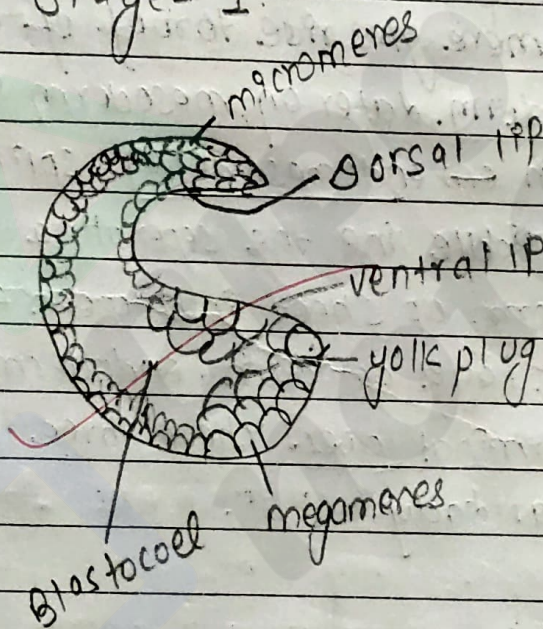 Stage - 1
micromeres
Dorsal lip
ventral lip
yolk plug
megameres
Blastocoel